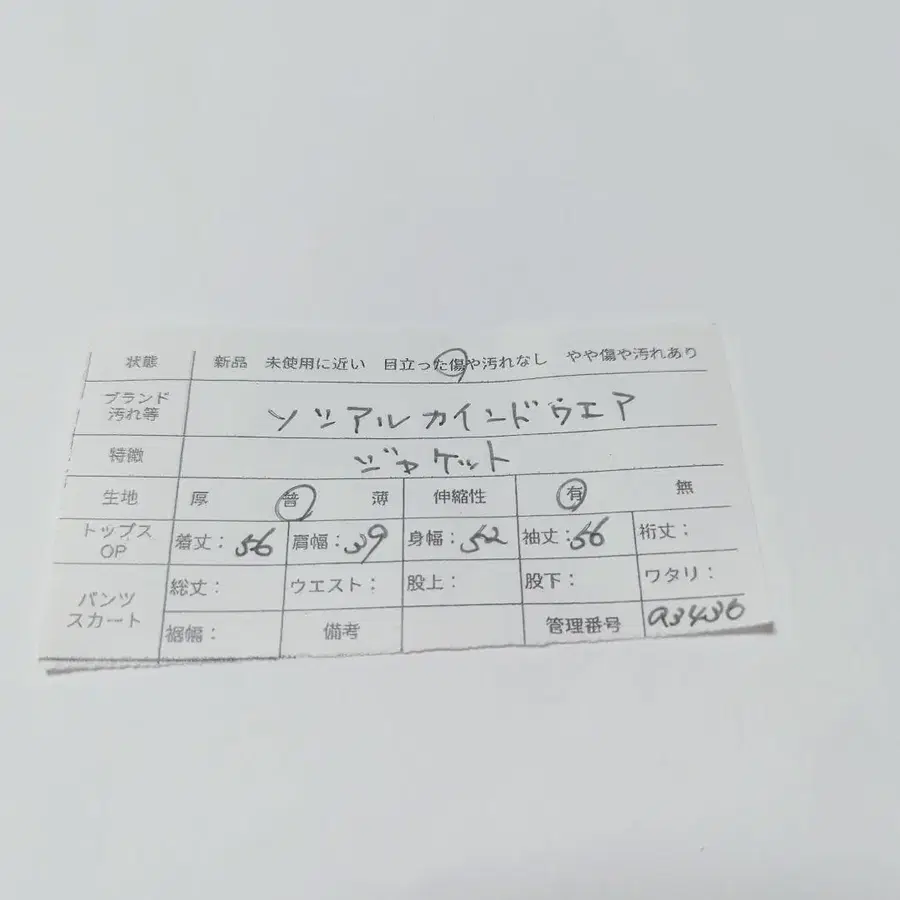 状態 新品 未使用に近い 目立った傷や汚れなし やや傷や汚れあり
ブランド
汚れ等 ソシアルカインドウエア
特徴 ジャケット
生地 厚 普 薄 伸縮性 有 無
トップス
OP 着丈：56 肩幅：39 身幅：52 袖丈：56 裄丈：
パンツ
スカート 総丈： ウエスト： 股上： 股下： ワタリ：
裾幅： 備考 管理番号 a3436